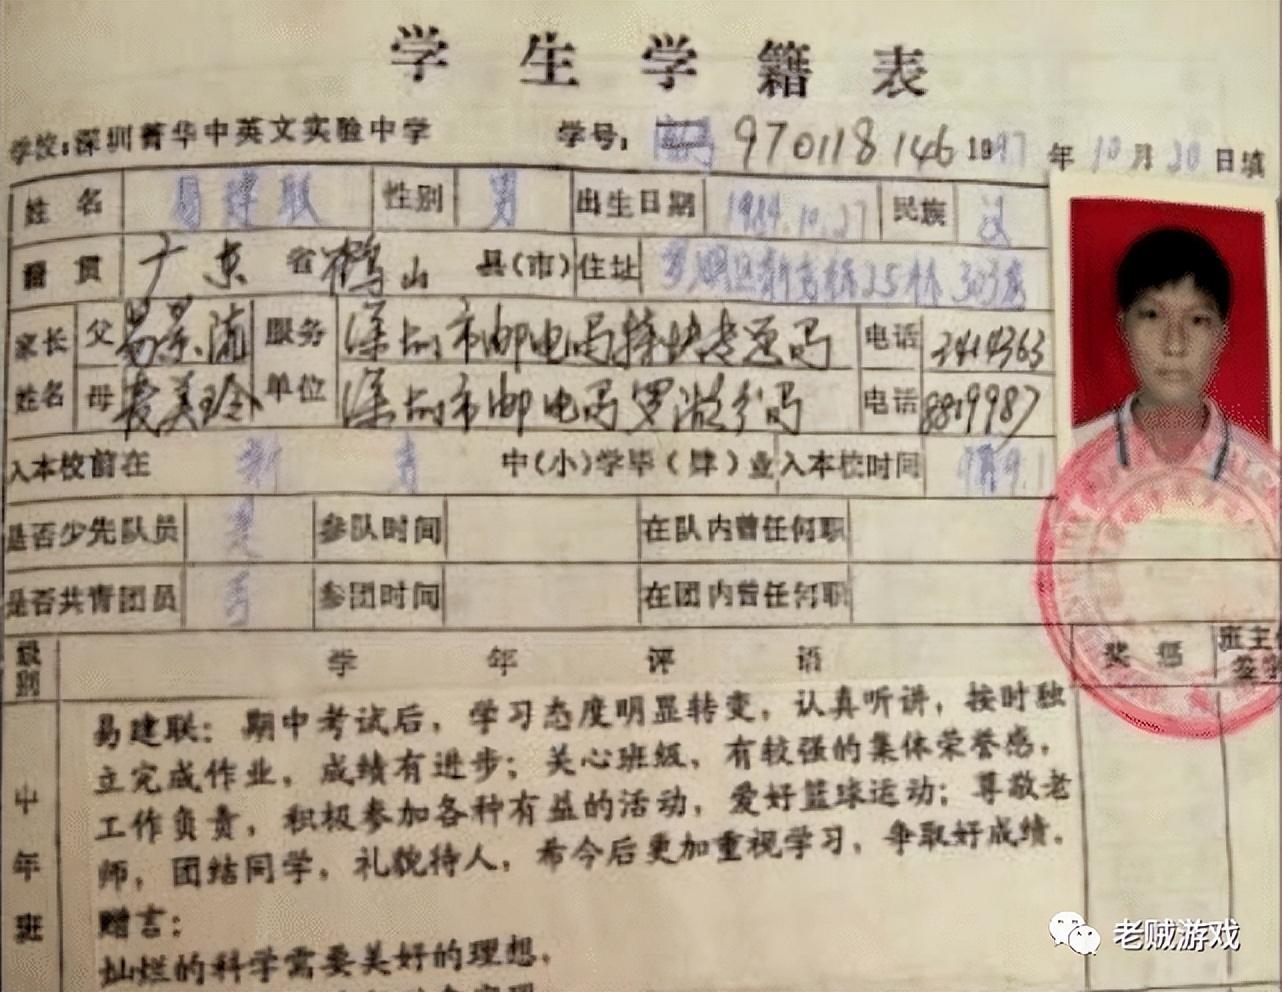 学生学籍表
学校:深圳菁华中英文实验中学 学号: 970118146 1997年10月20日填
姓名 易建联 性别 男 出生日期 1984.10.27 民族 汉
籍贯 广东省鹤山县(市) 住址 罗湖区新秀栋25栋303房
家长 父 易景流 服务 深圳市邮电局特快专递局 电话 2414363
姓名 母 麦美玲 单位 深圳市邮电局罗湖分局 电话 8819987
入本校前在 新秀 中(小)学毕(肆)业 入本校时间
是否少先队员 是 参队时间 在队内曾任何职
是否共青团员 否 参团时间 在团内曾任何职
级别 学年评语 奖惩 班主
签字
中年班
易建联:期中考试后,学习态度明显转变,认真听讲,按时独
立完成作业,成绩有进步;关心班级,有较强的集体荣誉感,
工作负责,积极参加各种有益的活动,爱好篮球运动;尊敬老
师,团结同学,礼貌待人,希今后更加重视学习,争取好成绩。
赠言:
灿烂的科学需要美好的理想,
老贼游戏